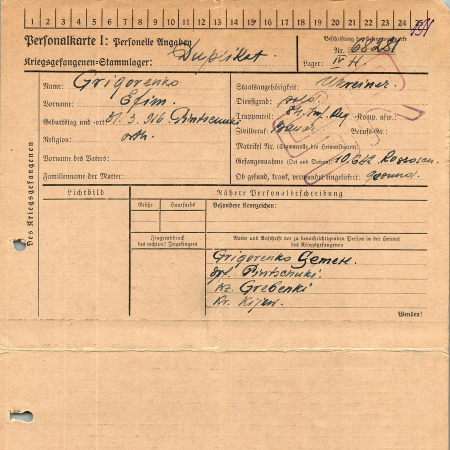 1 2 3 4 5 6 7 8 9 10 11 12 13 14 15 16 17 18 19 20 21 22 23 24
Personalkarte I: Personelle Angaben
Duplikat.
Beschriftung der Erkennungsmarke
Nr. 68281
Kriegsgefangenen-Stammlager:
Lager: IV H.
Des Kriegsgefangenen
Name: Grigorenko
Vorname: Efim.
Geburtstag und -ort: 31.3.916 Pintschuki
Religion: orth.
Vorname des Vaters:
Familienname der Mutter:
Staatsangehörigkeit: Ukreiner.
Dienstgrad: sold.
Truppenteil: Inf. Reg. Komp. usw.:
Zivilberuf: Bauer. Berufs-Gr.:
Matrikel Nr. (Stammrolle des Heimatstaates):
Gefangennahme (Ort und Datum):
Ob gesund, krank, verwundet eingeliefert: gesund.
Lichtbild
Nähere Personalbeschreibung
Größe Haarfarbe Besondere Kennzeichen:
Fingerabdruck
des rechten! Zeigefingers
Name und Anschrift der zu benachrichtigenden Person in der Heimat
des Kriegsgefangenen
Grigorenko
Pintschuki.
Grebenki
Kr. Kijew.
Wenden!